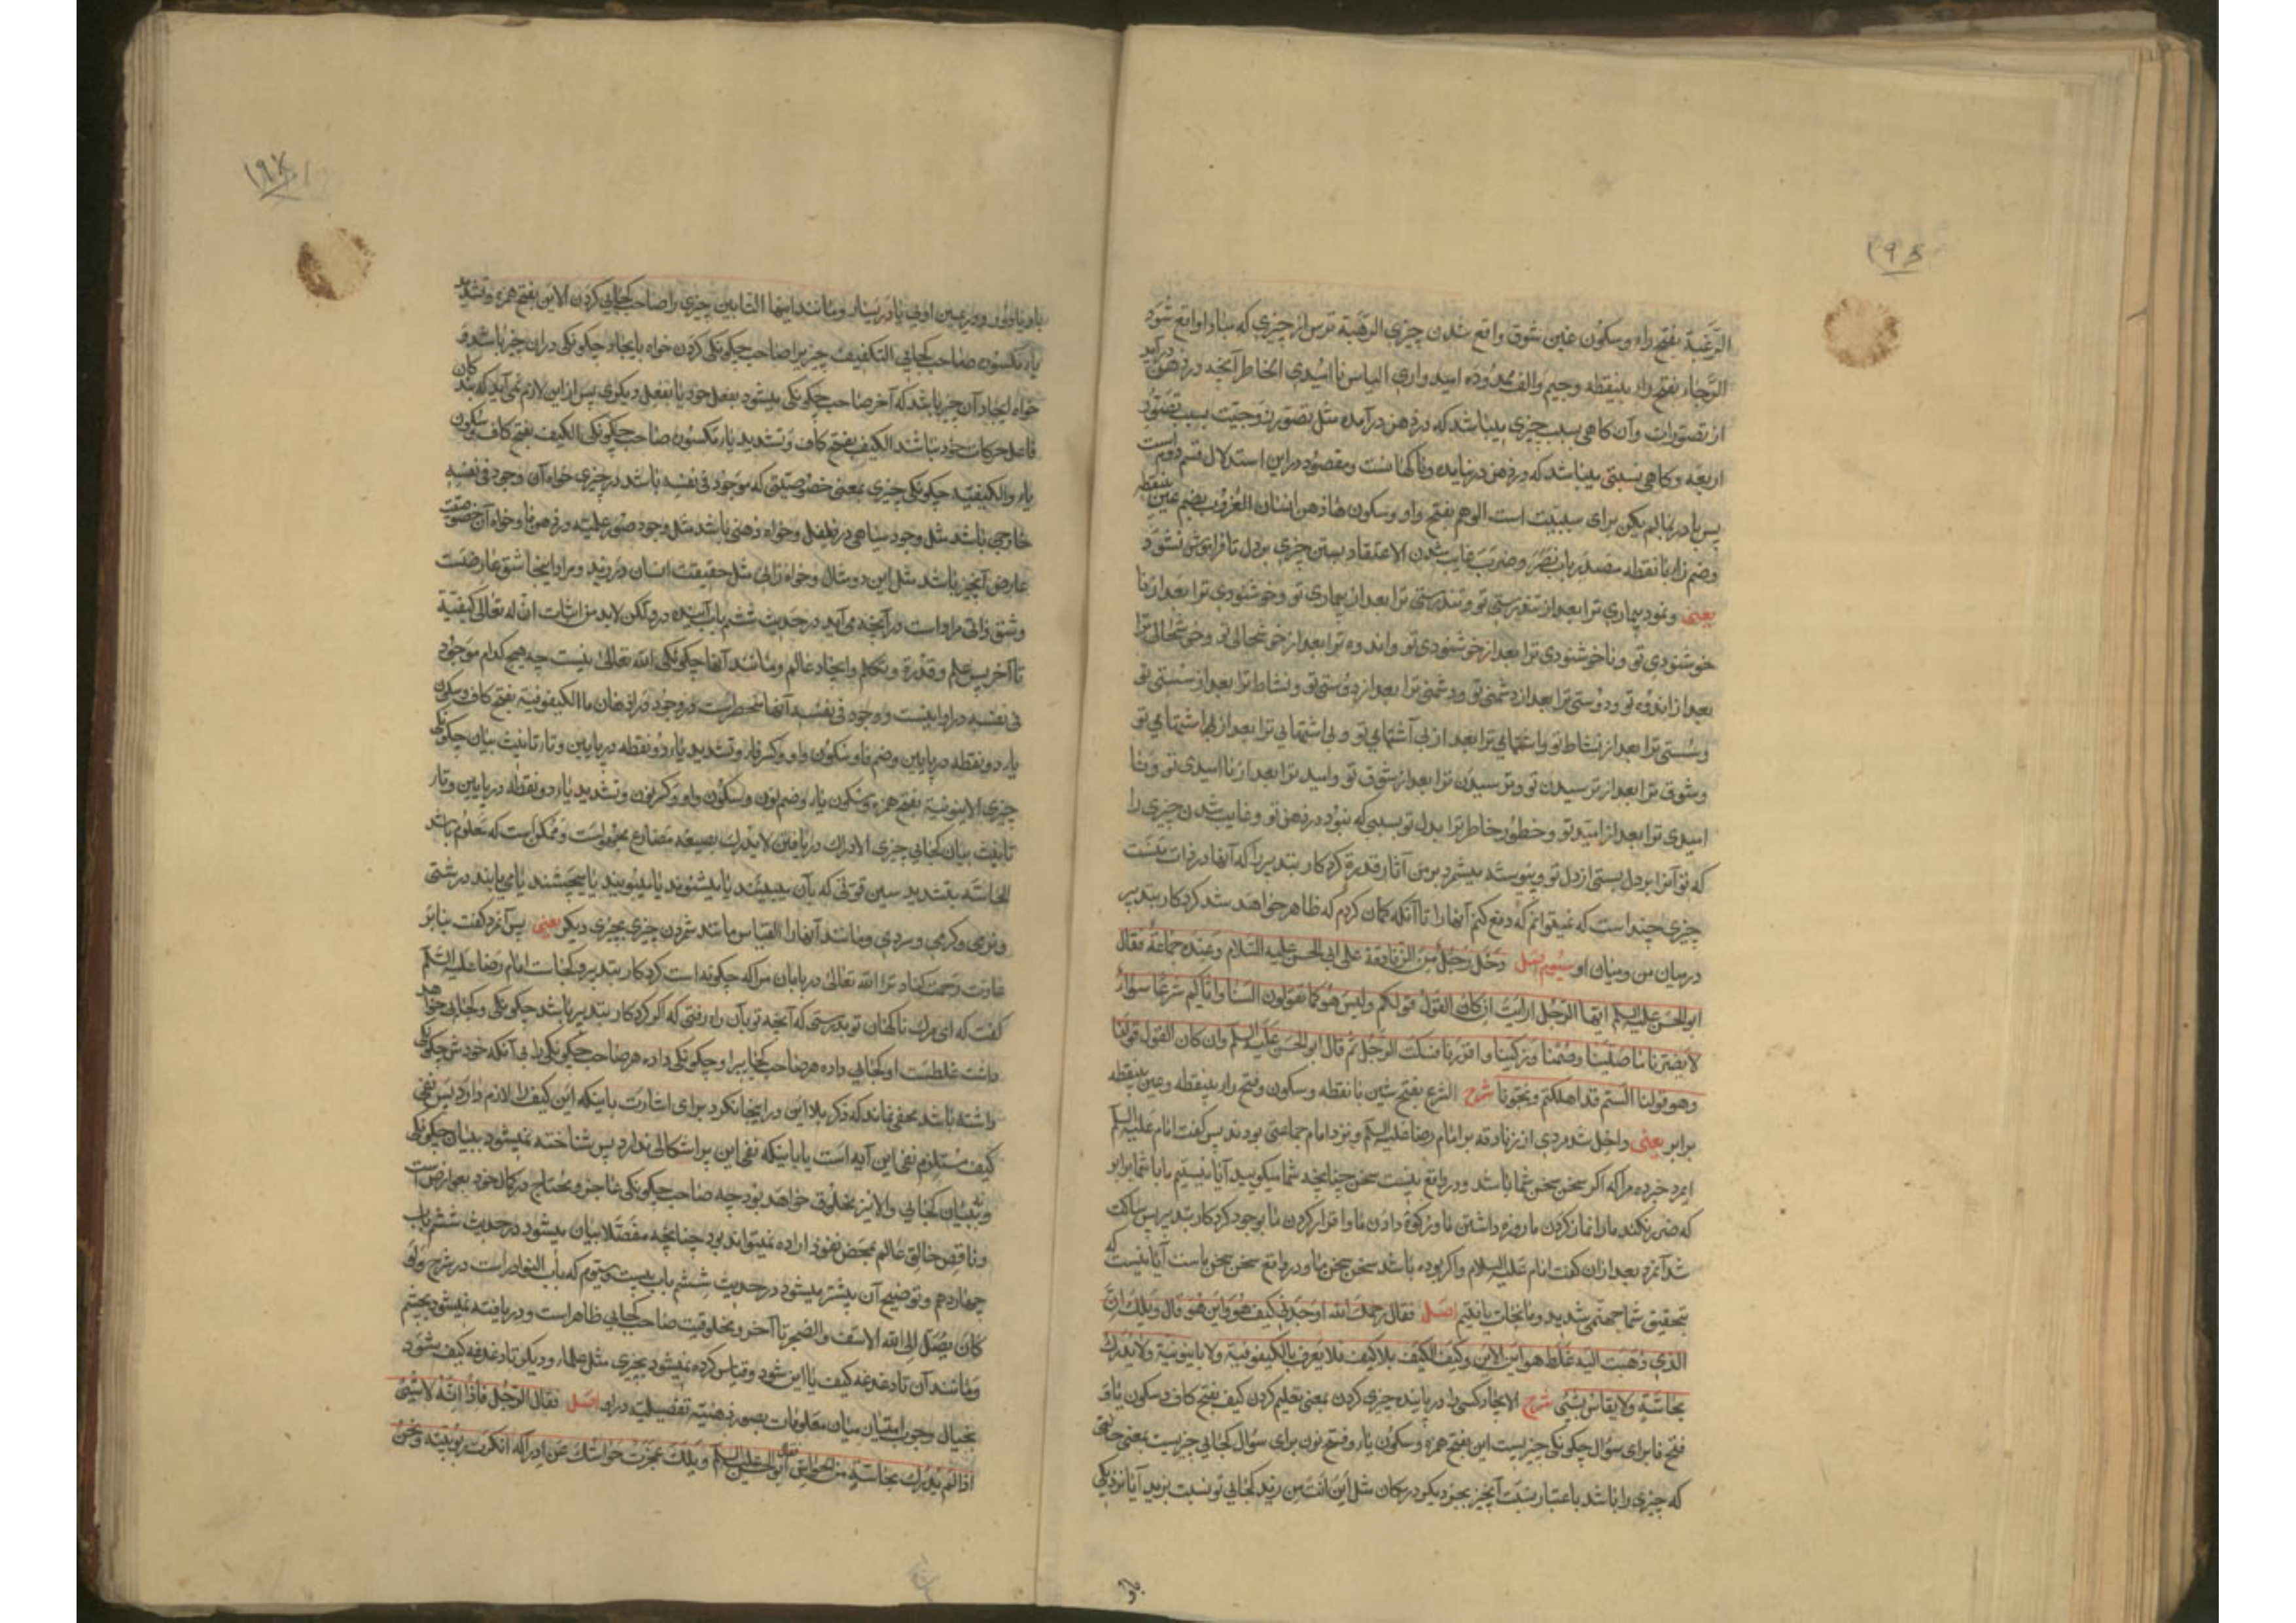 ۱۹۶
الرَّغبة بفتح راء و سکون غین شوق واقع شدن چیزی الرهبة ترس از چیزی که مبادا واقع شود
الرَّجاء بفتح راء بینقطه وجیم والف ممدوده امیدواری الیاس ناامیدی الخاطر آنچه در ذهن درآید
از تصورات و آن کاهی بسبب چیزی میباشد که در ذهن درآمده مثل تصور زوجیّت بسبب تصوّر
اربعه و کاهی بسببی میباشد که در ذهن درنیامده و ناکهانست و مقصود در این استدلال قسم دوم است
پس با در بمالم یکن برای سببیت است الوهم بفتح واو و سکون هاء ذهن انسان العُزُوب بضم عین بینقطه
وضم زاء بانقطه مصدر باب نصر و ضرب غایب شدن الاعتقاد بستن چیزی بر دل تا فراموش نشود
یعنی و نمود بیماری ترا بعد از تندرستی تو و تندرستی ترا بعد از بیماری تو و خوشنودی ترا بعد از نا
خوشنودی تو و ناخوشنودی ترا بعد از خوشنودی تو و اندوه ترا بعد از خوشحالی تو و خوشحالی ترا
بعد از اندوه تو و دوستی ترا بعد از دشمنی تو و دشمنی ترا بعد از دوستی تو و نشاط ترا بعد از سستی تو
و سستی ترا بعد از نشاط تو و اشتهای ترا بعد از بی اشتهایی تو و بی اشتهایی ترا بعد از اشتهای تو
و شوق ترا بعد از ترسیدن تو و ترسیدن ترا بعد از شوق تو و امید ترا بعد از ناامیدی تو و نا
امیدی ترا بعد از امید تو و خطور خاطر ترا بدل تو بسببی که نبود در ذهن تو و غایب شدن چیزی را
که تو آنرا بر دل بستی از دل تو و پیوسته میشمرد بر من آثار قدرة کردکار بتدبیر را که آنها در ذات منست
چیزی چند است که نمیتوانم که دفع کنم آنها را تا آنکه کمان کردم که ظاهر خواهد شد کردکار بتدبیر
درمیان من و میان او سیُوم اصل دَخَلَ رَجُلٌ مِن الزنادقة علی ابی الحسن علیه السّلام و عنده جماعةٌ فقال
ابو الحسن علیه السلم ایها الرّجل ارایت ان کان القول قولکم ولیس هو کما تقولون السنا وایّاکم شرعًا سواءً
لا یضرنا ما صلّینا و صُمنا و زکّینا واقررنا فسکت الرّجل ثم قال ابو الحسن علیه السلم وان کان القول قولنا
وهو قولنا الستم قد اهلکتم و نجونا شرح الشرع بفتح شین بانقطه و سکون و فتح راء بینقطه و عین بینقطه
برابر یعنی داخل شد مردی از زنادقه بر امام رضا علیه السلم و نزد امام جماعتی بودند پس کفت امام علیه السلم
ایمرد خبر ده مرا که اکر سخن سخن شما باشد و در واقع نیست سخن چنانچه شما میکویید آیا نیستیم ما با شما برابر
که ضرر نکند ما را نماز کردن ما و روزه داشتن ما و زکوة دادن ما و اقرار کردن ما بوجود کردکار بتدبیر پس ساکت
شد آنمرد بعد از ان کفت امام علیه السلام و اکر بوده باشد سخن سخن ما و در واقع سخن سخن ماست آیا نیست که
بتحقیق شما جهنمی شدید و ما نجات یافتیم اصل فقال رحمک الله اوجدنی کیف هو و این هو قال ویلک انّ
الذی ذهبت الیه غلط هو این الاین وکیف الکیف بلا کیف فلا یعرف بالکیفوفیّة ولا باینونیّة ولا یدرک
بحاسّةٍ ولا یقاس بشیٔ شرح الایجاد کسی را دریابنده چیزی کردن بمعنی تعلیم کردن کیف بفتح کاف و سکون یاء و
فتح فا برای سؤال چکونکی چیزیست این بفتح همزه و سکون یاء و فتح نون برای سؤال کجایی چیزیست بمعنی حالتی
که چیزی را باشد باعتبار نسبت آنچیز بچیز دیکر در مکان مثل این انت من زید کجایی تو نسبت بزید آیا نزدیکی
یا دور
۱۹۷
یا دور و در یمین اویی یا در یسار و مانند اینها التّایین چیزی را صاحب کجایی کردن الاین بفتح همزه و تشدید
یاء مکسوره صاحب کجایی التکفیف چیزیرا صاحب چکونکی کردن خواه بایجاد چکونکی در ان چیز باشد و
خواه بایجاد آن چیز باشد که آخر صاحب چکونکی میشود بفعل خود یا بفعل دیکری پس از این لازم نمی آید که بندکان
فاعل حرکات خود نباشد الکیف بفتح کاف و تشدید یاء مکسوره صاحب چکونکی الکیف بفتح کاف و سکون
یاء والکیفیّة چکونکی چیزی بمعنی خصوصیتی که موجود فی نفسه باشد در چیزی خواه آن وجود فی نفسه
خارجی باشد مثل وجود سیاهی در فلفل و خواه ذهنی باشد مثل وجود صور علمیّه در ذهن ما و خواه آن خصوصیّت
عارض آنچیز باشد مثل این دو مثال و خواه ذاتی مثل حقیقت انسان در زید و مراد اینجا شق عارضیست
و شق ذاتی مراد است در آنچه می آید در حدیث ششم باب آینده در ولکن لابد من اثبات انّ له تعالی کیفیّة
تا آخر پس علم و قدرة و تکلم و ایجاد عالم و مانند آنها چکونکی الله تعالی نیست چه هیچ کدام موجود
فی نفسه در او نیست و وجود فی نفسه آنها منحصر است در وجود در اذهان ما الکیفوفیّة بفتح کاف و سکون
یاء دو نقطه در پایین و ضم فا و سکون واو و کسر فاء و تشدید یاء دو نقطه در پایین و تاء تانیث بیان چکونکی
چیزی الاینونیّة بفتح همزه و سکون یاء و ضم نون و سکون واو و کسر نون و تشدید یاء دو نقطه در پایین و تاء
تانیث بیان کجایی چیزی الادراک دریافتن لا یدرک بصیغه مضارع مجهولست و ممکن است که معلوم باشد
الحاسّه بتشدید سین قوتی که بآن میبینند یا میشنوند یا میبویند یا میچشند یا می یابند درشتی
و نرمی و کرمی و سردی و مانند آنها را القیاس مانند شمردن چیزی بچیزی دیکر یعنی پس آنمرد کفت بنابر
عادت رحمت کناد ترا الله تعالی دریابان مرا که چکونه است کردکار بتدبیر و کجاست امام رضا علیه السّلم
کفت که ای مرک ناکهان تو بدرستی که آنچه تو بآن راه رفتی که اکر کردکار بتدبیر باشد چکونکی و کجایی خواهد
داشت غلطست او کجایی داده هر صاحب کجاییرا و چکونکی داده هر صاحب چکونکی را بی آنکه خودش چکونکی
داشته باشد مخفی نماند که ذکر بلا این در اینجا نکرد برای اشارت باینکه این کیف را لازم دارد پس نفی
کیف مستلزم نفی این آیه است یا باینکه نفی این براشکالی ندارد پس شناخته نمیشود ببیان چکونکی
و نه ببیان کجایی والا نیز مخلوق خواهد بود چه صاحب چکونکی عاجز و محتاج در کمال خود بعوارض است
و ناقص خالق عالم بمحض نفوذ اراده نمیتواند بود چنانچه مفصّلا بیان میشود در حدیث ششم باب
چهاردهم و توضیح آن بیشتر میشود در حدیث ششم باب بیست و سیوم که باب النوادر است در شرح ولو
کان یصل الی الله الاسف والضجر تا آخر و مخلوقیت صاحب کجایی ظاهر است و دریافته نمیشود بچشم
و مانند آن تا دغدغه کیف یا این شود و قیاس کرده نمیشود بچیزی مثل علماء و دیکر تا دغدغه کیف شود
بخیال وجوب امتیاز میان معلومات بصور ذهنیّه تفصیلیّه در او اصل فقال الرّجل فاذًا انّه لا شیٔ
اذا لم یُدرک بحاسّةٍ من الحواسّ فقال ابو الحسن علیه السلم ویلک لمّا عجزت حواسّک عن ادراکه انکرت ربوبیّته ونحنُ